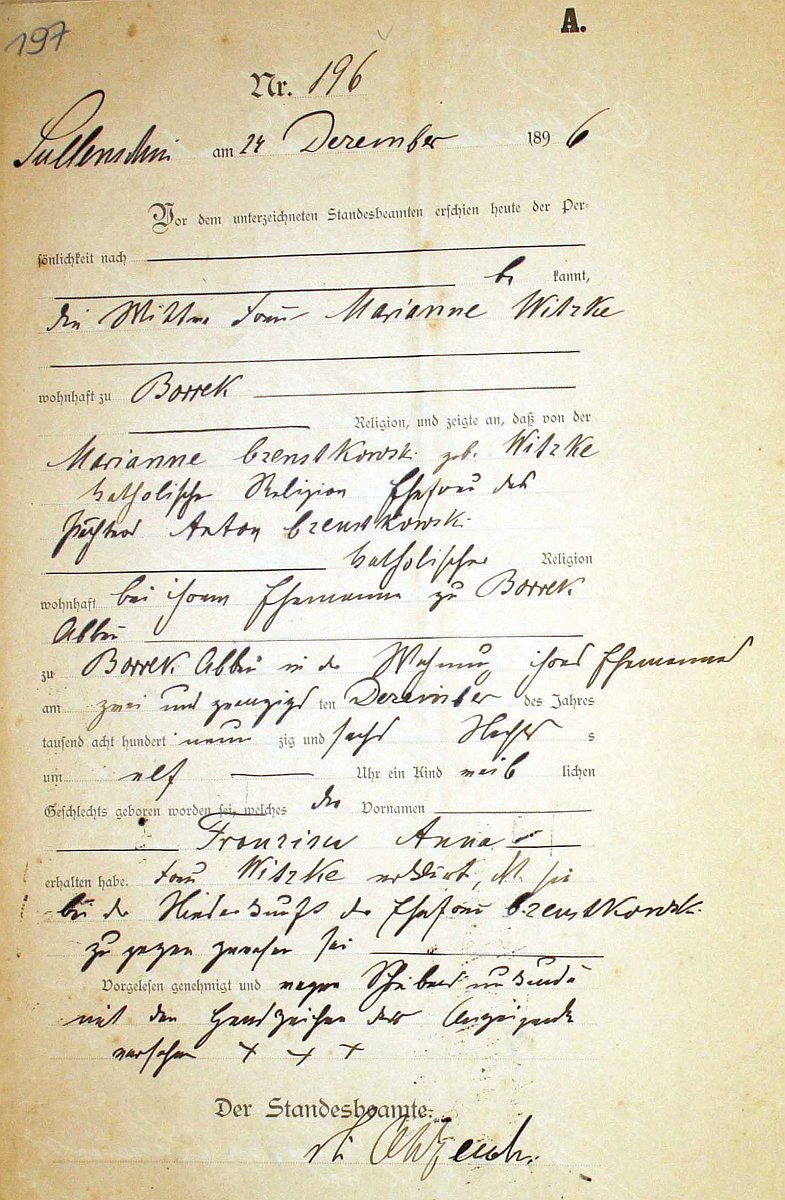 197
A.
Nr. 196
Sullenschin am 24 Dezember 1896
Vor dem unterzeichneten Standesbeamten erschien heute der Per-
sönlichkeit nach
be kannt,
die Wittwe Frau Marianne Witzke
wohnhaft zu Borrek
Religion, und zeigte an, daß von der
Marianne Czenstkowski geb. Witzke
katholischer Religion Ehefrau des
Pächters Anton Czenstkowski
katholischer Religion
wohnhaft bei ihrem Ehemanne zu Borrek
Abbau
zu Borrek Abbau in der Wohnung ihres Ehemannes
am zwei und zwanzigs ten Dezember des Jahres
tausend acht hundert neun zig und sechs Nachts
um elf Uhr ein Kind weib lichen
Geschlechts geboren worden sei, welches die Vornamen
Anna
erhalten habe. Frau Witzke erklärt, daß sie
bei der Niederkunft der Ehefrau Czenstkowski
zugegen gewesen sei
Vorgelesen genehmigt und wegen Schreibensunkunde
mit den Handzeichen der Anzeigende
versehen + + +
Der Standesbeamte.